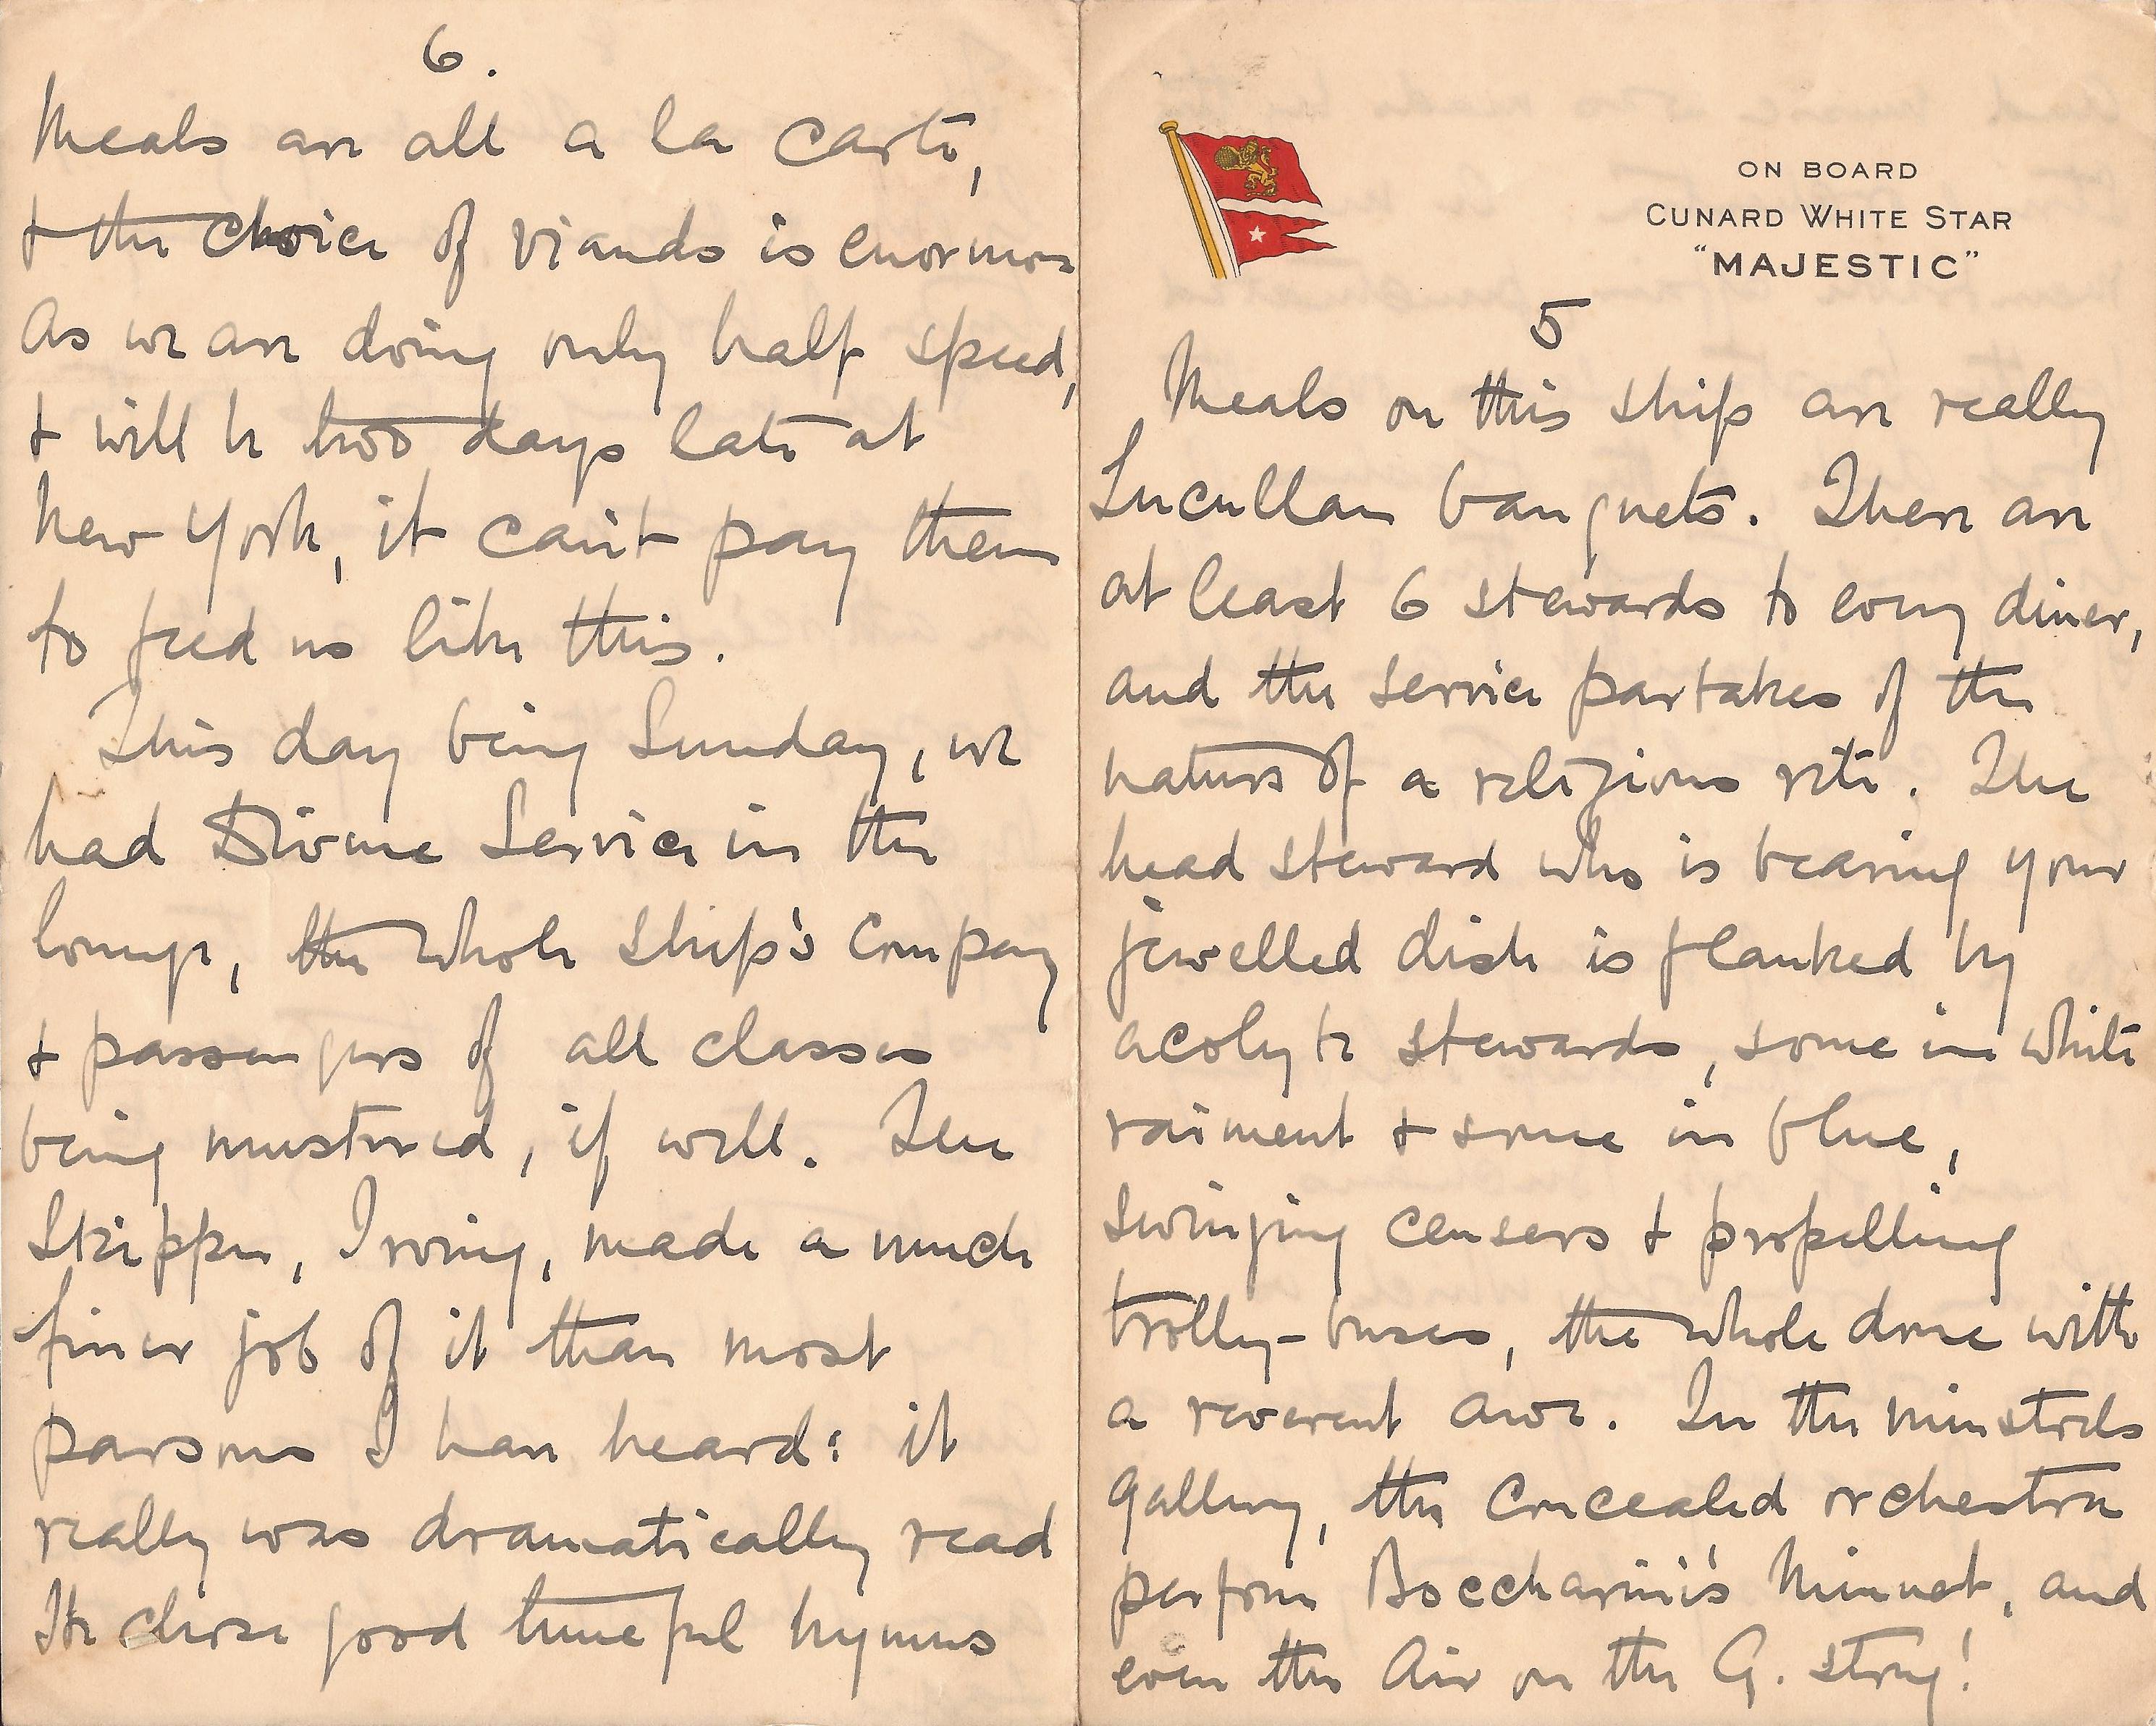 6.
Meals are all a la carte,
& the choice of viands is enormous
As we are doing only half speed,
& will be two days late at
New York, it can't pay them
to feed us like this.
This day being Sunday, we
had Divine Service in the
lounge, the whole ship's company
& passengers of all classes
being mustered, if well. The
Skipper, Irving, made a much
finer job of it than most
parsons I have heard: it
really was dramatically read
He chose good tuneful hymns
ON BOARD
CUNARD WHITE STAR
"MAJESTIC"
5
Meals on this ship are really
Lucullan banquets. There are
at least 6 stewards to every diner,
and the service partakes of the
nature of a religious rite. The
head steward who is bearing your
jewelled dish is flanked by
acolyte stewards, some in white
raiment & some in blue,
swinging censers & propelling
trolly-buses, the whole done with
a reverent awe. In the minstrels
gallery, the concealed orchestra
perform Boccharini's Minuet, and
even the Air on the G. string!